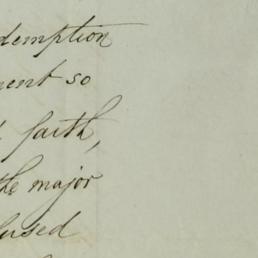 demption
ment so
faith,
the major
fused